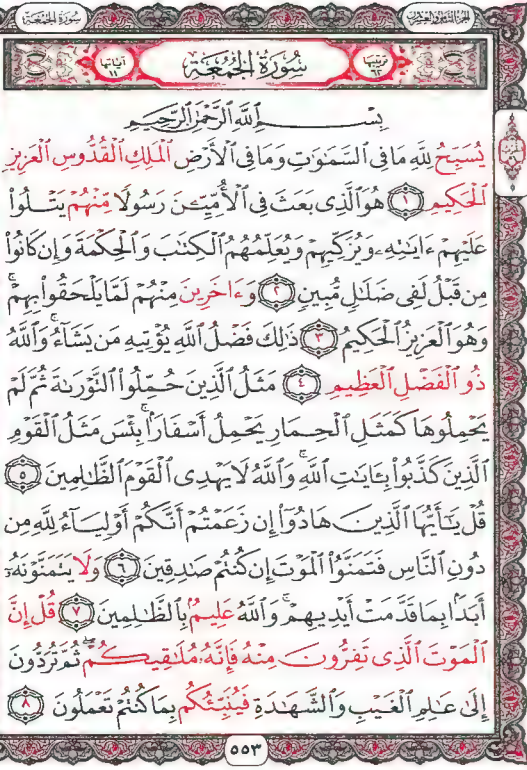 الجزء الثامن والعشرون
سورة الجمعة
ترتيبها ٦٢
سُورَةُ الجُمُعَة
آياتها ١١
بِسْمِ ٱللَّهِ ٱلرَّحْمَٰنِ ٱلرَّحِيمِ
يُسَبِّحُ لِلَّهِ مَا فِى ٱلسَّمَٰوَٰتِ وَمَا فِى ٱلْأَرْضِ ٱلْمَلِكِ ٱلْقُدُّوسِ ٱلْعَزِيزِ
ٱلْحَكِيمِ ١ هُوَ ٱلَّذِى بَعَثَ فِى ٱلْأُمِّيِّـۧنَ رَسُولًا مِّنْهُمْ يَتْلُوا۟
عَلَيْهِمْ ءَايَٰتِهِۦ وَيُزَكِّيهِمْ وَيُعَلِّمُهُمُ ٱلْكِتَٰبَ وَٱلْحِكْمَةَ وَإِن كَانُوا۟
مِن قَبْلُ لَفِى ضَلَٰلٍ مُّبِينٍ ٢ وَءَاخَرِينَ مِنْهُمْ لَمَّا يَلْحَقُوا۟ بِهِمْ ۚ
وَهُوَ ٱلْعَزِيزُ ٱلْحَكِيمُ ٣ ذَٰلِكَ فَضْلُ ٱللَّهِ يُؤْتِيهِ مَن يَشَآءُ ۚ وَٱللَّهُ
ذُو ٱلْفَضْلِ ٱلْعَظِيمِ ٤ مَثَلُ ٱلَّذِينَ حُمِّلُوا۟ ٱلتَّوْرَىٰةَ ثُمَّ لَمْ
يَحْمِلُوهَا كَمَثَلِ ٱلْحِمَارِ يَحْمِلُ أَسْفَارًۢا ۚ بِئْسَ مَثَلُ ٱلْقَوْمِ
ٱلَّذِينَ كَذَّبُوا۟ بِـَٔايَٰتِ ٱللَّهِ ۚ وَٱللَّهُ لَا يَهْدِى ٱلْقَوْمَ ٱلظَّٰلِمِينَ ٥
قُلْ يَٰٓأَيُّهَا ٱلَّذِينَ هَادُوٓا۟ إِن زَعَمْتُمْ أَنَّكُمْ أَوْلِيَآءُ لِلَّهِ مِن
دُونِ ٱلنَّاسِ فَتَمَنَّوُا۟ ٱلْمَوْتَ إِن كُنتُمْ صَٰدِقِينَ ٦ وَلَا يَتَمَنَّوْنَهُۥٓ
أَبَدًۢا بِمَا قَدَّمَتْ أَيْدِيهِمْ ۚ وَٱللَّهُ عَلِيمٌۢ بِٱلظَّٰلِمِينَ ٧ قُلْ إِنَّ
ٱلْمَوْتَ ٱلَّذِى تَفِرُّونَ مِنْهُ فَإِنَّهُۥ مُلَٰقِيكُمْ ۖ ثُمَّ تُرَدُّونَ
إِلَىٰ عَٰلِمِ ٱلْغَيْبِ وَٱلشَّهَٰدَةِ فَيُنَبِّئُكُم بِمَا كُنتُمْ تَعْمَلُونَ ٨
٥٥٣